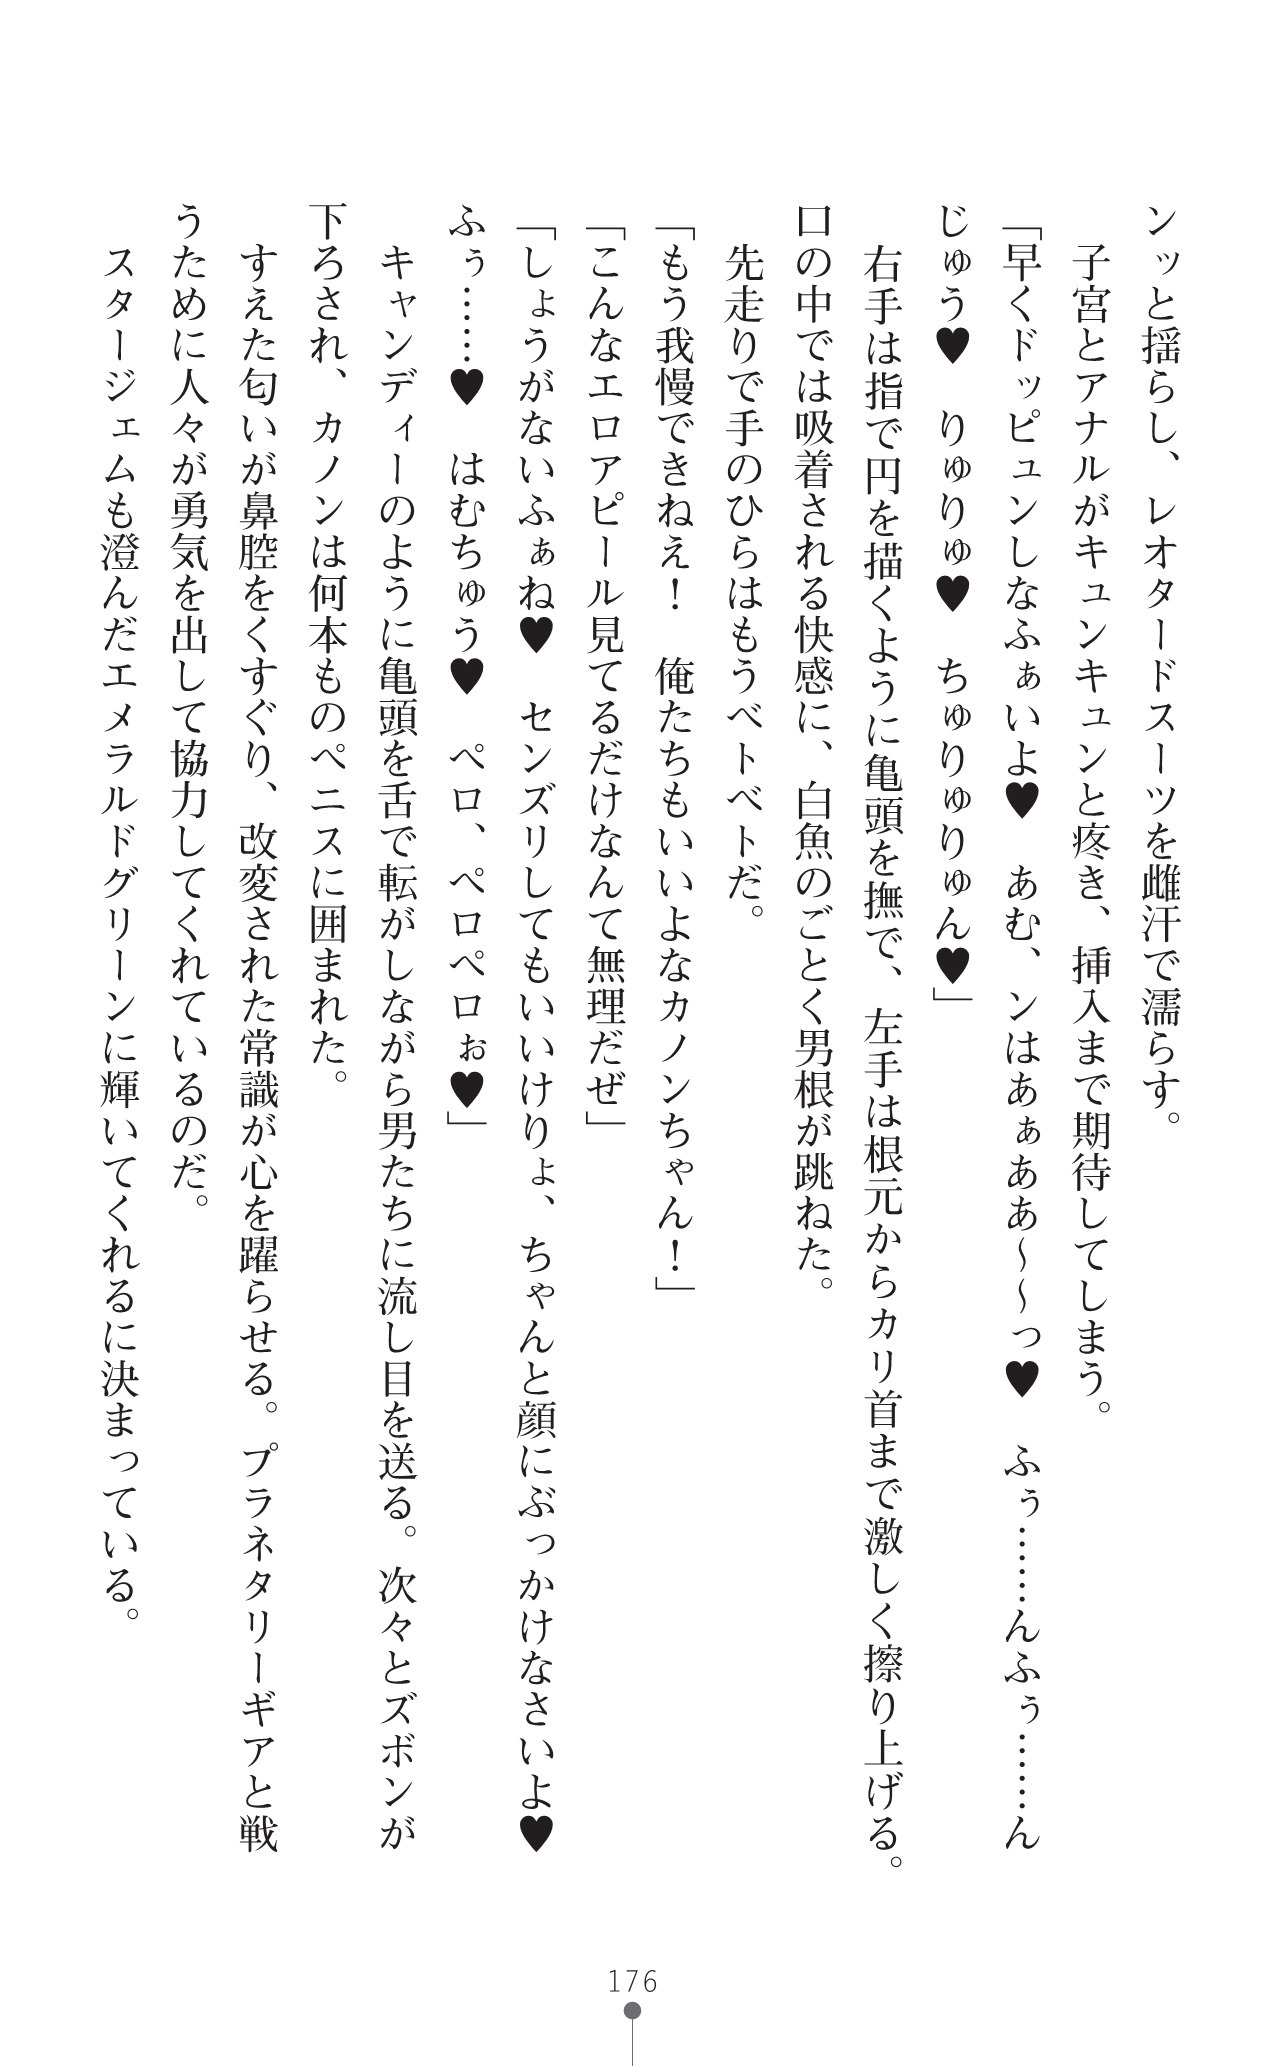 ンッと揺らし、レオタードスーツを雌汗で濡らす。
　子宮とアナルがキュンキュンと疼き、挿入まで期待してしまう。
「早くドッピュンしなふぁいよ♥　あむ、ンはあぁああ～～っ♥　ふぅ……んふぅ……ん
じゅう♥　りゅりゅ♥　ちゅりゅりゅん♥」
　右手は指で円を描くように亀頭を撫で、左手は根元からカリ首まで激しく擦り上げる。
口の中では吸着される快感に、白魚のごとく男根が跳ねた。
　先走りで手のひらはもうベトベトだ。
「もう我慢できねえ！　俺たちもいいよなカノンちゃん！」
「こんなエロアピール見てるだけなんて無理だぜ」
「しょうがないふぁね♥　センズリしてもいいけりょ、ちゃんと顔にぶっかけなさいよ♥
ふぅ……♥　はむちゅう♥　ペロ、ペロペロぉ♥」
　キャンディーのように亀頭を舌で転がしながら男たちに流し目を送る。次々とズボンが
下ろされ、カノンは何本ものペニスに囲まれた。
　すえた匂いが鼻腔をくすぐり、改変された常識が心を躍らせる。プラネタリーギアと戦
うために人々が勇気を出して協力してくれているのだ。
　スタージェムも澄んだエメラルドグリーンに輝いてくれるに決まっている。
176